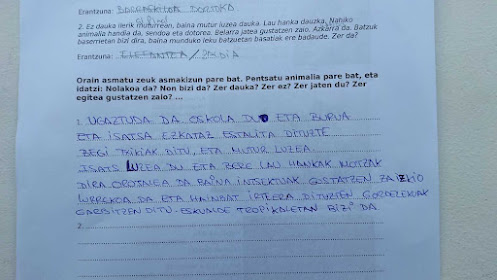 Erantzuna: BORRAGAILUA DORTOKO
2. Ez dauka ilerik muturrean, baina mutur luzea dauka. Lau hanka dauzka. Nahiko
animalia handia da, sendoa eta dotorea. Belarra jatea gustatzen zaio. Azkarra da. Batzuk
baserrietan bizi dira, baina munduko leku batzuetan basatiak ere badaude. Zer da?
Erantzuna: ELEFANTEA / ZALDIA
Orain asmatu zeuk asmakizun pare bat. Pentsatu animalia pare bat, eta
idatzi: Nolakoa da? Non bizi da? Zer dauka? Zer ez? Zer jaten du? Zer
egitea gustatzen zaio? ...
1. UGAZTUNA DA. OSKOLA DU ETA BURUA
ETA ISATSA EZKATAZ ESTALITA DITUZTE
BEGI TXIKIAK DITU, ETA MUTUR LUZEA.
ISATS LUZEA DU ETA BERE LAU HANKAK MOTZAK
DIRA. OROJALEA DA BAINA INTSEKTUAK GUSTATZEN ZAIZKIO
LURREKOA DA ETA HAINBAT IRTEERA DITUZTEN GORDELEKUAK
GARBITZEN DITU. ESKUALDE TROPIKALETAN BIZI DA
2.